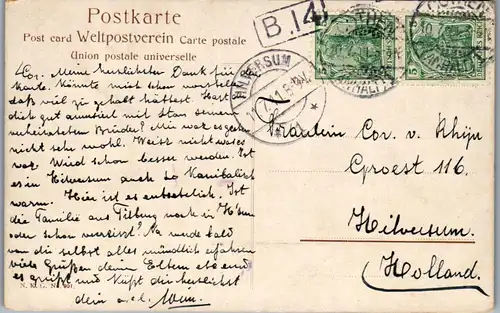 Postkarte
Post card Weltpostverein Carte postale
Union postale universelle
B.14
HILVERSUM
5
5
Cor. Meine herzlichsten Dank für
karte. Könnte mich schon vorstellen
daß viel zu gehabt hättest. Hast
dich gut amusiert mit Stan seinen
verheirateten Brüder? Mir war es gar
nicht sehr wohl. Weiss nicht was es
war. Wird schon besser werden. Ist
es in Hilversum auch so Kanibalisch
warm. Hier ist es entsetzlich. Ist
die Familie aus Tilburg noch in H'sum
oder schon verreist? Na werde bald
von dir selbst alles mündlich erfahren
viele Grüßen deine Eltern
gegrüßt und Küßt dir herzlichst
dein Wim.
Fräulein Cor. v.
Groest 116.
Hilversum.
Holland.
N. K. G. N.